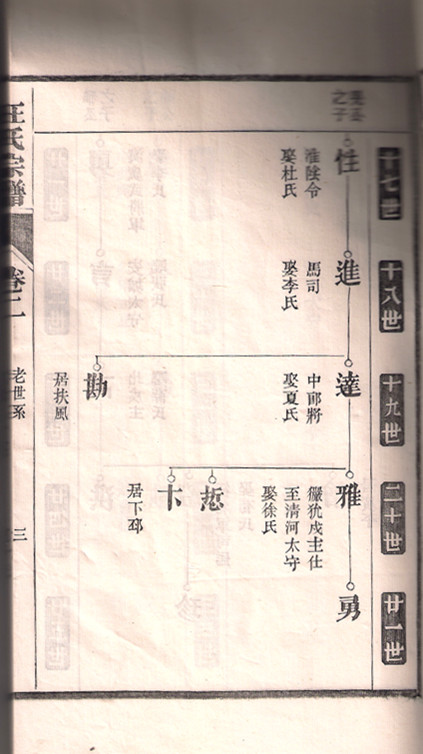 十七世
十八世
十九世
二十世
廿一世
之子
性
淮陰令
娶杜氏
進
馬司
娶李氏
達
中郎將
娶夏氏
勘
居扶風
雅
玁狁戍主仕
至清河太守
娶徐氏
卞
居下邳
勇
汪氏宗譜
卷二
老世系
三